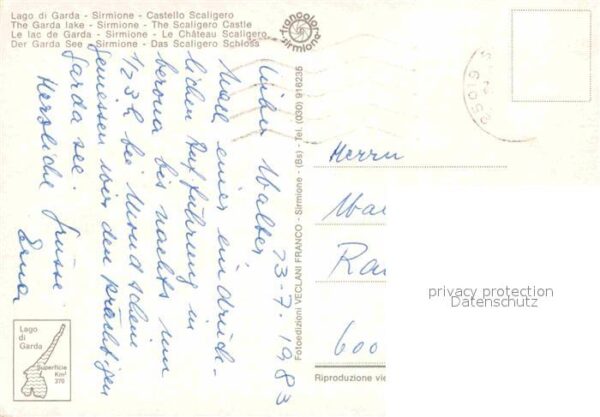 Lago di Garda - Sirmione - Castello Scaligero
The Garda lake - Sirmione - The Scaligero Castle
Le lac de Garda - Sirmione - Le Château Scaligero
Der Garda See - Sirmione - Das Scaligero Schloss
francolor
sirmione
13-7. 1983
Lieber Walter
Nach einer eindrück-
lichen Aufführung in
Verona bis nachts um
1/2 3 h bei Mondschein
geniessen wir den prächtigen
Garda see.
Herzliche Grüsse
Erna
Fotoedizioni VECLANI FRANCO - Sirmione - (Bs) - Tel. (030) 916235
Herrn
Wal
Ra
600
Riproduzione vie
privacy protection
Datenschutz
Lago
di
Garda
Superficie
Km²
370